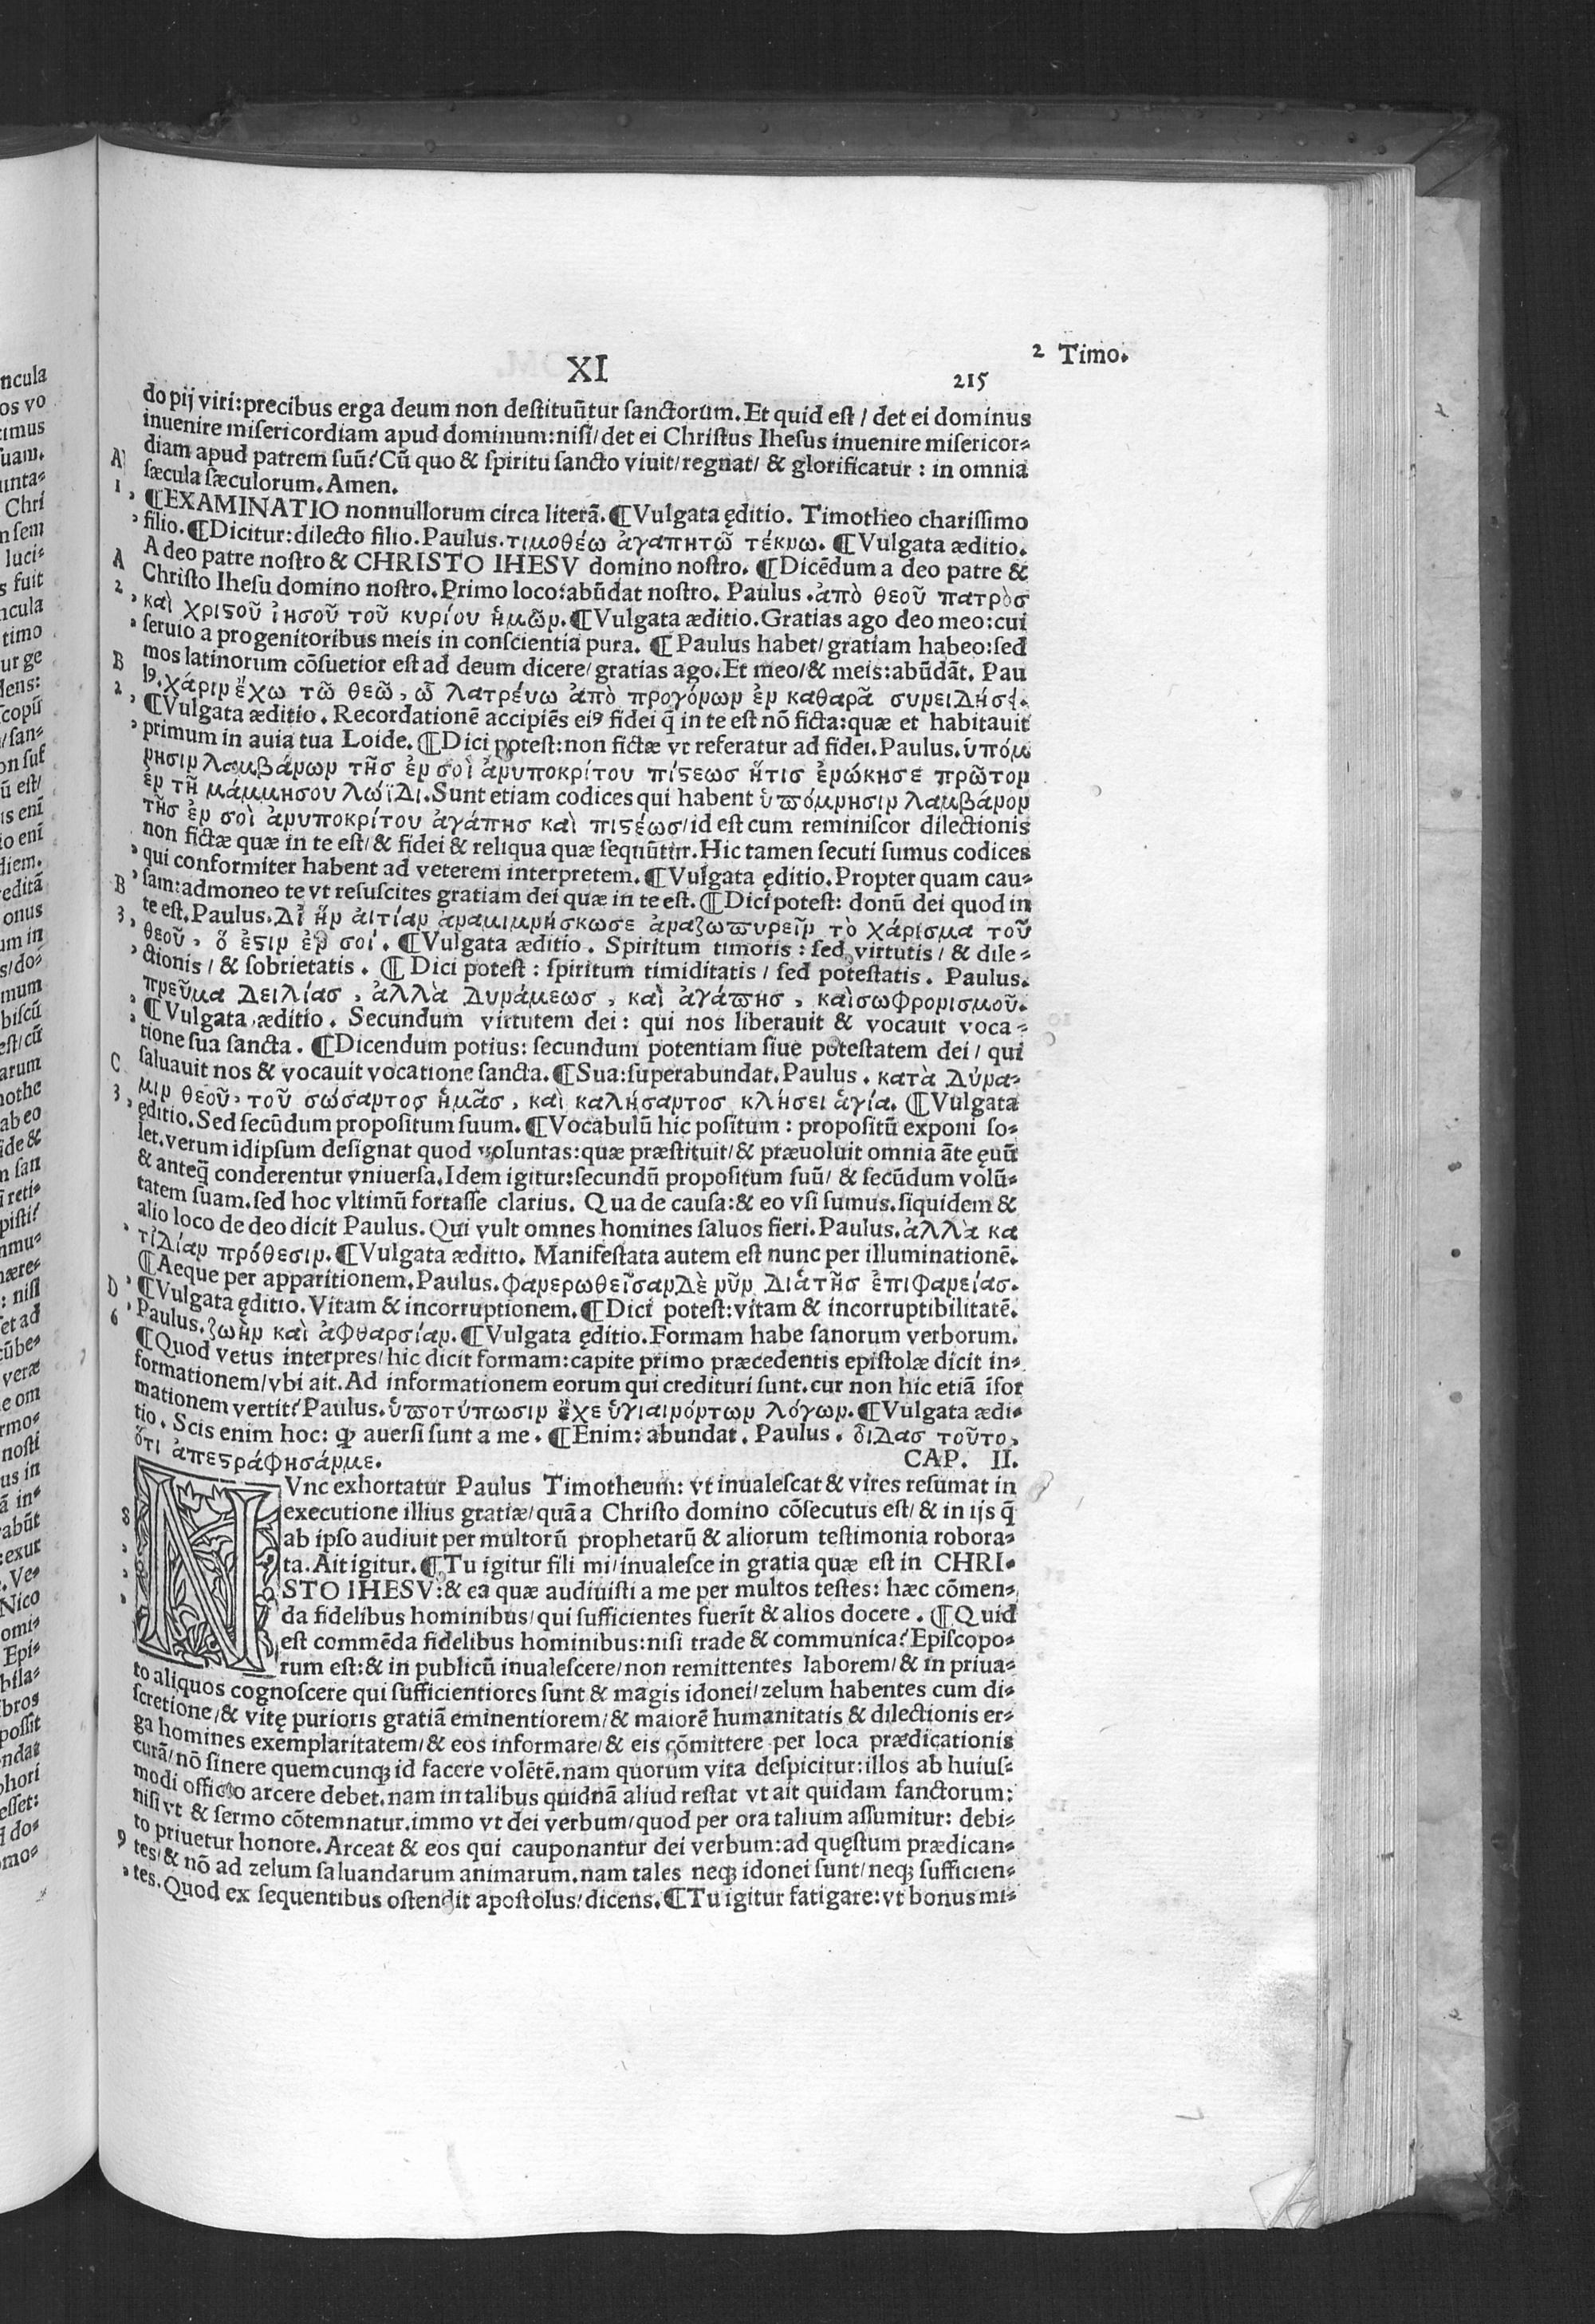 XI
2 Timo.
215
do pij viri:precibus erga deum non destituũtur sanctorum. Et quid est / det ei dominus
inuenire misericordiam apud dominum:nisi/det ei Christus Ihesus inuenire misericor-
diam apud patrem suũ? Cũ quo & spiritu sancto viuit/regnat/ & glorificatur : in omnia
sæcula sæculorum. Amen.
¶EXAMINATIO nonnullorum circa literã. ¶Vulgata ęditio. Timotheo charissimo
filio. ¶Dicitur:dilecto filio. Paulus. τιμοθέω ἀγαπητῶ τέκνω. ¶Vulgata æditio.
A deo patre nostro & CHRISTO IHESV domino nostro. ¶Dicẽdum a deo patre &
Christo Ihesu domino nostro. Primo loco:abũdat nostro. Paulus .ἀπὸ θεοῦ πατρὸσ
καὶ χριϛοῦ ἰησοῦ τοῦ κυρίου ἡμῶν. ¶Vulgata æditio. Gratias ago deo meo:cui
seruio a progenitoribus meis in conscientia pura. ¶Paulus habet/gratiam habeo:sed
mos latinorum cõsuetior est ad deum dicere/gratias ago. Et meo/& meis:abũdãt. Pau
lꝰ. χάριν ἔχω τῶ θεῶ, ὧ λατρέυω ἀπὸ προγόνων ἐν καθαρᾶ συνειδήσει.
¶Vulgata æditio. Recordationẽ accipiẽs eiꝰ fidei q̃ in te est nõ ficta:quæ et habitauit
primum in auia tua Loide. ¶Dici potest:non fictæ vt referatur ad fidei. Paulus. ὑπόμ
νησιν λαμβάνων τῆσ ἐν σοὶ ἀνυποκρίτου πίϛεωσ ἥτισ ἐνώκησε πρῶτον
ἐν τῆ μάμμησου λωΐδι. Sunt etiam codices qui habent ὑπόμνησιν λαμβάνον
τῆσ ἐν σοὶ ἀνυποκρίτου ἀγάπησ καὶ πιϛέωσ/id est cum reminiscor dilectionis
non fictæ quæ in te est/& fidei & reliqua quæ sequũtur. Hic tamen secuti sumus codices
qui conformiter habent ad veterem interpretem. ¶Vulgata ęditio. Propter quam cau-
sam:admoneo te vt resuscites gratiam dei quæ in te est. ¶Dici potest: donũ dei quod in
te est. Paulus. Δἰ ἣν ἀιτίαν ἀναμιμνήσκωσε ἀναζωπυρεῖν τὸ χάρισμα τοῦ
θεοῦ, ὅ ἐϛιν ἐν σοί. ¶Vulgata æditio. Spiritum timoris : sed virtutis/ & dile-
ctionis/ & sobrietatis. ¶Dici potest : spiritum timiditatis/ sed potestatis. Paulus.
πνεῦμα δειλίασ, ἀλλὰ δυνάμεωσ, καὶ ἀγάπησ, καὶσωφρονισμοῦ.
¶Vulgata æditio. Secundum virtutem dei: qui nos liberauit & vocauit voca-
tione sua sancta. ¶Dicendum potius: secundum potentiam siue potestatem dei/ qui
saluauit nos & vocauit vocatione sancta. ¶Sua:superabundat. Paulus. κατὰ δύνα-
μιν θεοῦ, τοῦ σώσαντοσ ἡμᾶσ, καὶ καλήσαντοσ κλήσει ἁγία. ¶Vulgata
ęditio. Sed secũdum propositum suum. ¶Vocabulũ hic positum : propositũ exponi so-
let. verum idipsum designat quod voluntas:quæ præstituit/& præuoluit omnia ãte ęuũ
& anteq̃ conderentur vniuersa. Idem igitur:secundũ propositum suũ/ & secũdum volũ-
tatem suam. sed hoc vltimũ fortasse clarius. Qua de causa:& eo vsi sumus. siquidem &
alio loco de deo dicit Paulus. Qui vult omnes homines saluos fieri. Paulus. ἀλλὰ κα
τἰδίαν πρόθεσιν. ¶Vulgata æditio. Manifestata autem est nunc per illuminationẽ.
¶Aeque per apparitionem. Paulus. φανερωθεῖσανδὲ νῦν διὰτῆσ ἐπιφανείασ.
¶Vulgata ęditio. Vitam & incorruptionem. ¶Dici potest:vitam & incorruptibilitatẽ.
Paulus. ζωὴν καὶ ἀφθαρσίαν. ¶Vulgata ęditio. Formam habe sanorum verborum.
¶Quod vetus interpres/hic dicit formam:capite primo præcedentis epistolæ dicit in-
formationem/vbi ait. Ad informationem eorum qui credituri sunt. cur non hic etiã ĩfor
mationem vertit? Paulus. ὑποτύπωσιν ἔχε ὑγιαινόντων λόγων. ¶Vulgata ædi-
tio. Scis enim hoc: ꝙ auersi sunt a me. ¶Enim: abundat. Paulus. ὅιδασ τοῦτο,
ὅτι ἀπεϛράφησάνμε.
CAP. II.
NVnc exhortatur Paulus Timotheum: vt inualescat & vires resumat in
executione illius gratiæ/quã a Christo domino cõsecutus est/& in ijs q̃
ab ipso audiuit per multorũ prophetarũ & aliorum testimonia robora-
ta. Ait igitur. ¶Tu igitur fili mi/inualesce in gratia quæ est in CHRI-
STO IHESV:& ea quæ audiuisti a me per multos testes: hæc cõmen-
da fidelibus hominibus/qui sufficientes fuerĩt & alios docere. ¶Quid
est commẽda fidelibus hominibus:nisi trade & communica? Episcopo-
rum est:& in publicũ inualescere/non remittentes laborem/& in priua-
to aliquos cognoscere qui sufficientiores sunt & magis idonei/zelum habentes cum di-
scretione/& vitę purioris gratiã eminentiorem/& maiorẽ humanitatis & dilectionis er-
ga homines exemplaritatem/& eos informare/& eis cõmittere per loca prædicationis
curã/nõ sinere quemcunqꝫ id facere volẽtẽ. nam quorum vita despicitur:illos ab huius-
modi officio arcere debet. nam in talibus quidnã aliud restat vt ait quidam sanctorum:
nisi vt & sermo cõtemnatur. immo vt dei verbum/quod per ora talium assumitur: debi-
to priuetur honore. Arceat & eos qui cauponantur dei verbum:ad quęstum prædican-
tes/& nõ ad zelum saluandarum animarum. nam tales neqꝫ idonei sunt/neqꝫ sufficien-
tes. Quod ex sequentibus ostendit apostolus/dicens. ¶Tu igitur fatigare:vt bonus mi-